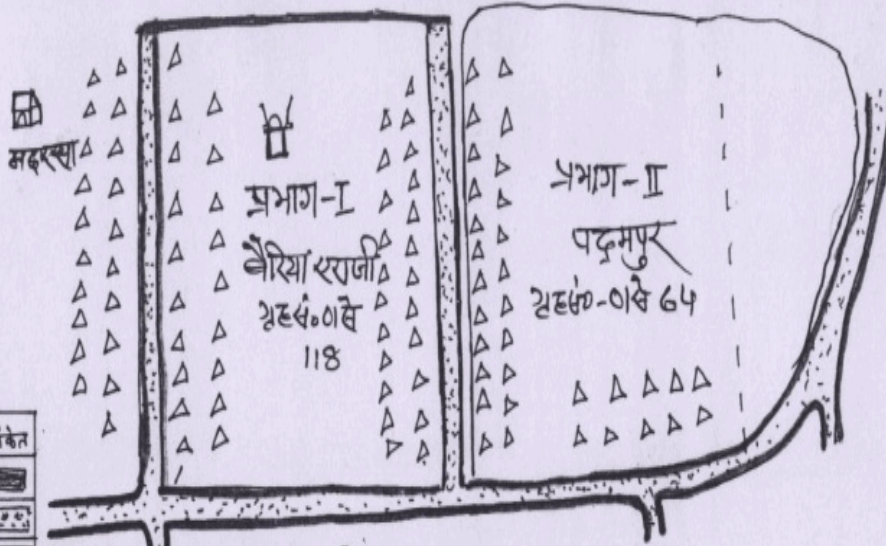 मदरसा
प्रभाग-I
बैरिया एराजी
गृहसं०01से
118
प्रभाग-II
पदमपुर
गृहसं०-01से 64